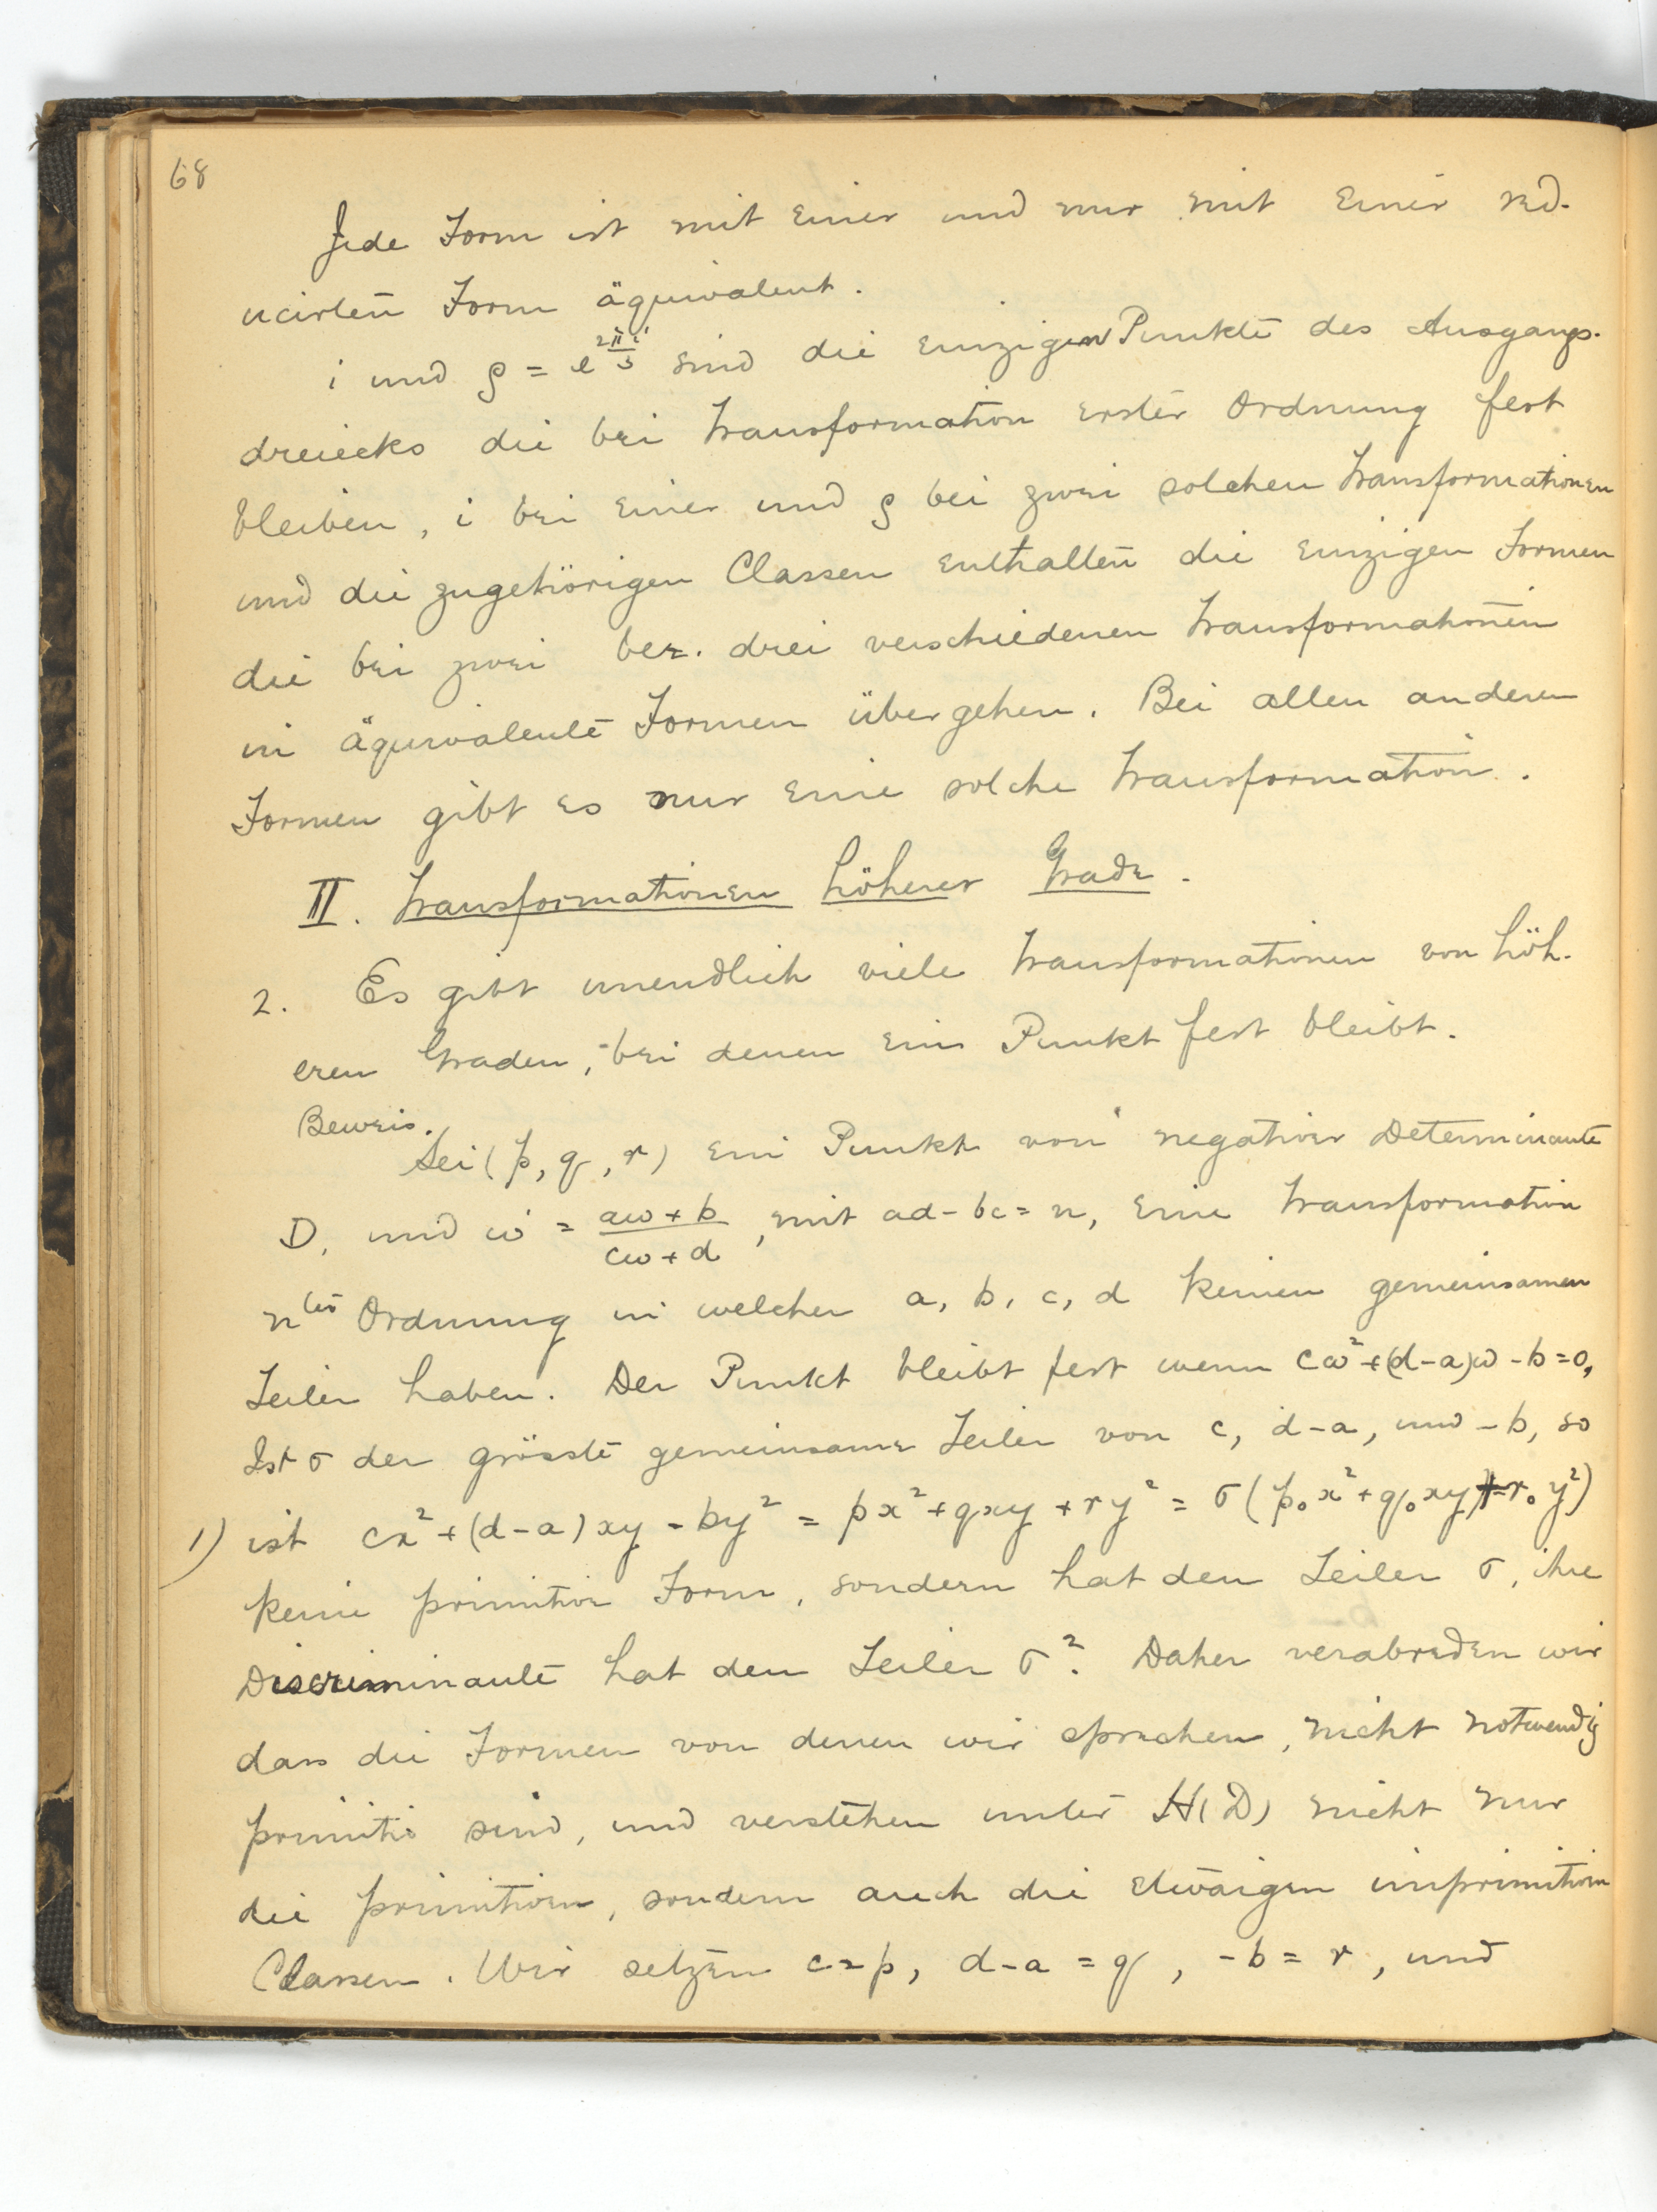 68
Jede Form ist mit einer und nur mit einer red-
ucirten Form äquivalent.
i und ρ = e^{2πi/3} sind die einzigen Punkte des Ausgangs-
dreiecks die bei Transformation erster Ordnung fest
bleiben, i bei einer und ρ bei zwei solchen Transformationen
und die zugehörigen Classen enthalten die einzigen Formen
die bei zwei bez. drei verschiedenen Transformationen
in äquivalente Formen übergehen. Bei allen anderen
Formen gibt es nur eine solche Transformation.
II. Transformationen höherer Grade.
2. Es gibt unendlich viele Transformationen von höh-
eren Graden, bei denen ein Punkt fest bleibt.
Beweis.
Sei (p, q, r) ein Punkt von negativer Determinante
D, und ω' = (aω + b)/(cω + d), mit ad - bc = n, eine Transformation
n^{ter} Ordnung in welcher a, b, c, d keinen gemeinsamen
Teiler haben. Der Punkt bleibt fest wenn cω² + (d-a)ω - b = 0,
Ist σ der grösste gemeinsame Teiler von c, d-a, und -b, so
1) ist cx² + (d-a)xy - by² = px² + qxy + ry² = σ(p₀x² + q₀xy + r₀y²)
keine primitive Form, sondern hat den Teiler σ, ihre
Discriminante hat den Teiler σ². Daher verabreden wir
dass die Formen von denen wir sprechen, nicht notwendig
primitiv sind, und verstehen unter H(D) nicht nur
die primitiven, sondern auch die etwaigen imprimitiven
Classen. Wir setzen c = p, d-a = q, -b = r, und